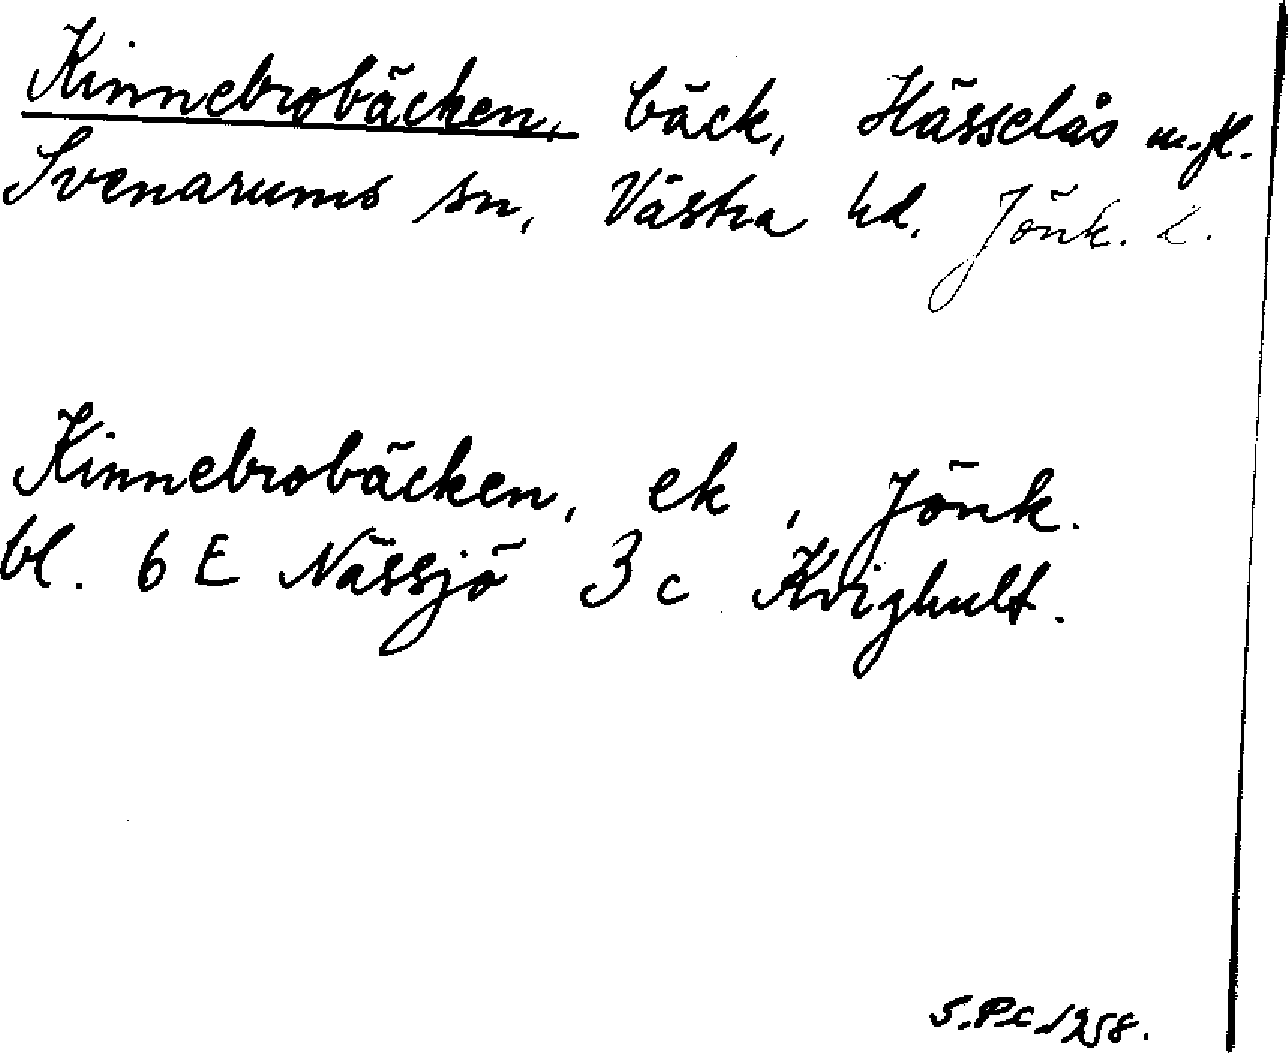 Kinnebrobäcken, bäck, Hässelås m.fl.
Svenarums sn, Västra hd. Jönk. l.
Kinnebrobäcken, ek, Jönk.
bl. 6 E Nässjö 3 c Kvighult.